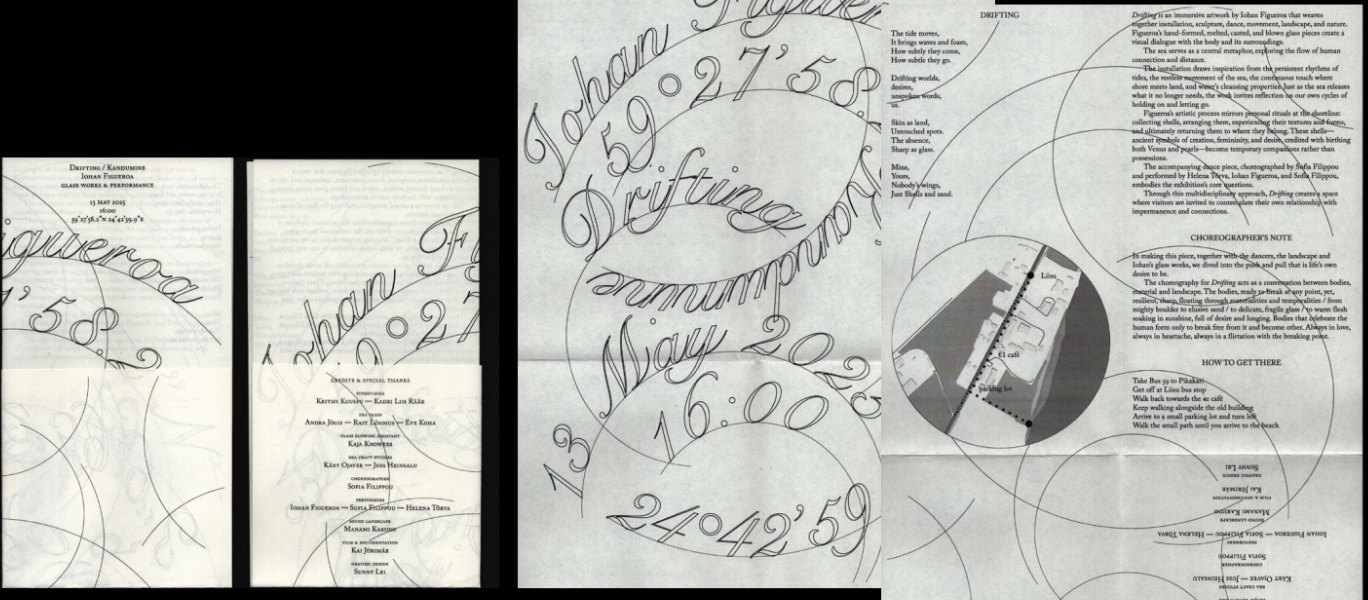 DRIFTING / KANDUMINE
IOHAN FIGUEROA
GLASS WORKS & PERFORMANCE
13 MAY 2025
16:00
59°27'58.2"N 24°42'59.9"E
igueroa
7'58.2
Iohan Fi
9°27
CREDITS & SPECIAL THANKS
SUPERVISORS
KEITHY KUUSPU — KADRI LIIS RÄÄK
ANDRA JÕGIS — RAIT LÕHMUS — EVE KOHA
GLASS BLOWING ASSISTANT
KAJA KNOWERS
KÄRT OJAVEE — JUSS HEINSALU
CHOREOGRAPHER
SOFIA FILIPPOU
PERFORMERS
IOHAN FIGUEROA — SOFIA FILIPPOU — HELENA TÕRVA
SOUND LANDSCAPE
MANAMI KAKUDO
FILM & DOCUMENTATION
KAI JÜRIMÄE
GRAPHIC DESIGN
SUNNY LEI
Iohan Figuer
59°27'58.
Drifting
Kandumine
13 May 2025
16:00
24°42'59
DRIFTING
The tide moves,
It brings waves and foam,
How subtly they come,
How subtle they go.
Drifting worlds,
desires,
unspoken words,
us.
Skin as land,
Untouched spots.
The absence,
Sharp as glass.
Mine,
Yours,
Nobody's wings,
Just Shells and sand.
Liisu
€1 café
parking lot
Drifting is an immersive artwork by Iohan Figueroa that weaves
together installation, sculpture, dance, movement, landscape, and nature.
Figueroa's hand-formed, melted, casted, and blown glass pieces create a
visual dialogue with the body and its surroundings.
The sea serves as a central metaphor, exploring the flow of human
connection and distance.
The installation draws inspiration from the persistent rhythms of
tides, the restless movement of the sea, the continuous touch where
shore meets land, and water's cleansing properties. Just as the sea releases
what it no longer needs, the work invites reflection on our own cycles of
holding on and letting go.
Figueroa's artistic process mirrors personal rituals at the shoreline:
collecting shells, arranging them, experiencing their textures and forms,
and ultimately returning them to where they belong. These shells—
ancient symbols of creation, femininity, and desire, credited with birthing
both Venus and pearls—become temporary companions rather than
possessions.
The accompanying dance piece, choreographed by Sofia Filippou
and performed by Helena Tõrva, Iohan Figueroa, and Sofia Filippou,
embodies the exhibition's core questions.
Through this multidisciplinary approach, Drifting creates a space
where visitors are invited to contemplate their own relationship with
impermanence and connections.
CHOREOGRAPHER'S NOTE
In making this piece, together with the dancers, the landscape and
Iohan's glass works, we dived into the push and pull that is life's own
desire to be.
The choreography for Drifting acts as a conversation between bodies,
material and landscape. The bodies, ready to break at any point, yet,
resilient, sharp, floating through materialities and temporalities / from
mighty boulder to elusive sand / to delicate, fragile glass / to warm flesh
soaking in sunshine, full of desire and longing. Bodies that celebrate the
human form only to break free from it and become other. Always in love,
always in heartache, always in a flirtation with the breaking point.
HOW TO GET THERE
Take Bus 59 to Pikakari
Get off at Liisu bus stop
Walk back towards the €1 café
Keep walking alongside the old building
Arrive to a small parking lot and turn left
Walk the small path until you arrive to the beach
SUNNY LEI
GRAPHIC DESIGN
KAI JÜRIMÄE
FILM & DOCUMENTATION
MANAMI KAKUDO
SOUND LANDSCAPE
IOHAN FIGUEROA — SOFIA FILIPPOU — HELENA TÕRVA
PERFORMERS
SOFIA FILIPPOU
CHOREOGRAPHER
KÄRT OJAVEE — JUSS HEINSALU